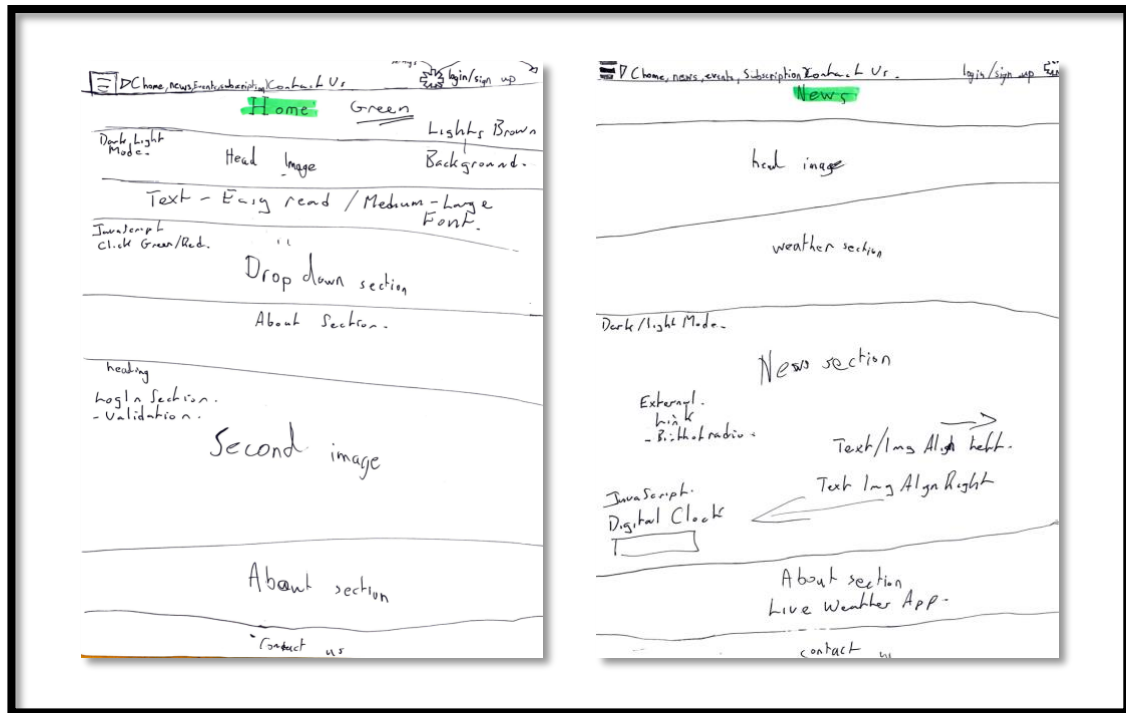 login/sign up
(home, news, Events, subscription) Contact Us
Home Green
Lights Brown
Dark, Light
Mode.
Head Image
Background.
Text - Easy read / Medium - Large
Font.
JavaScript
Click Green/Red.
Drop down section
About Section.
heading
LogIn Section.
- Validation.
Second image
About section
Contact us
(home, news, events, Subscription) Contact Us.
login/sign up
News
head image
weather section
Dark/light Mode.
News section
External.
Link
Text/Img Align Left.
Text Img Align Right
JavaScript.
Digital Clock
About section
Live Weather App.
contact us